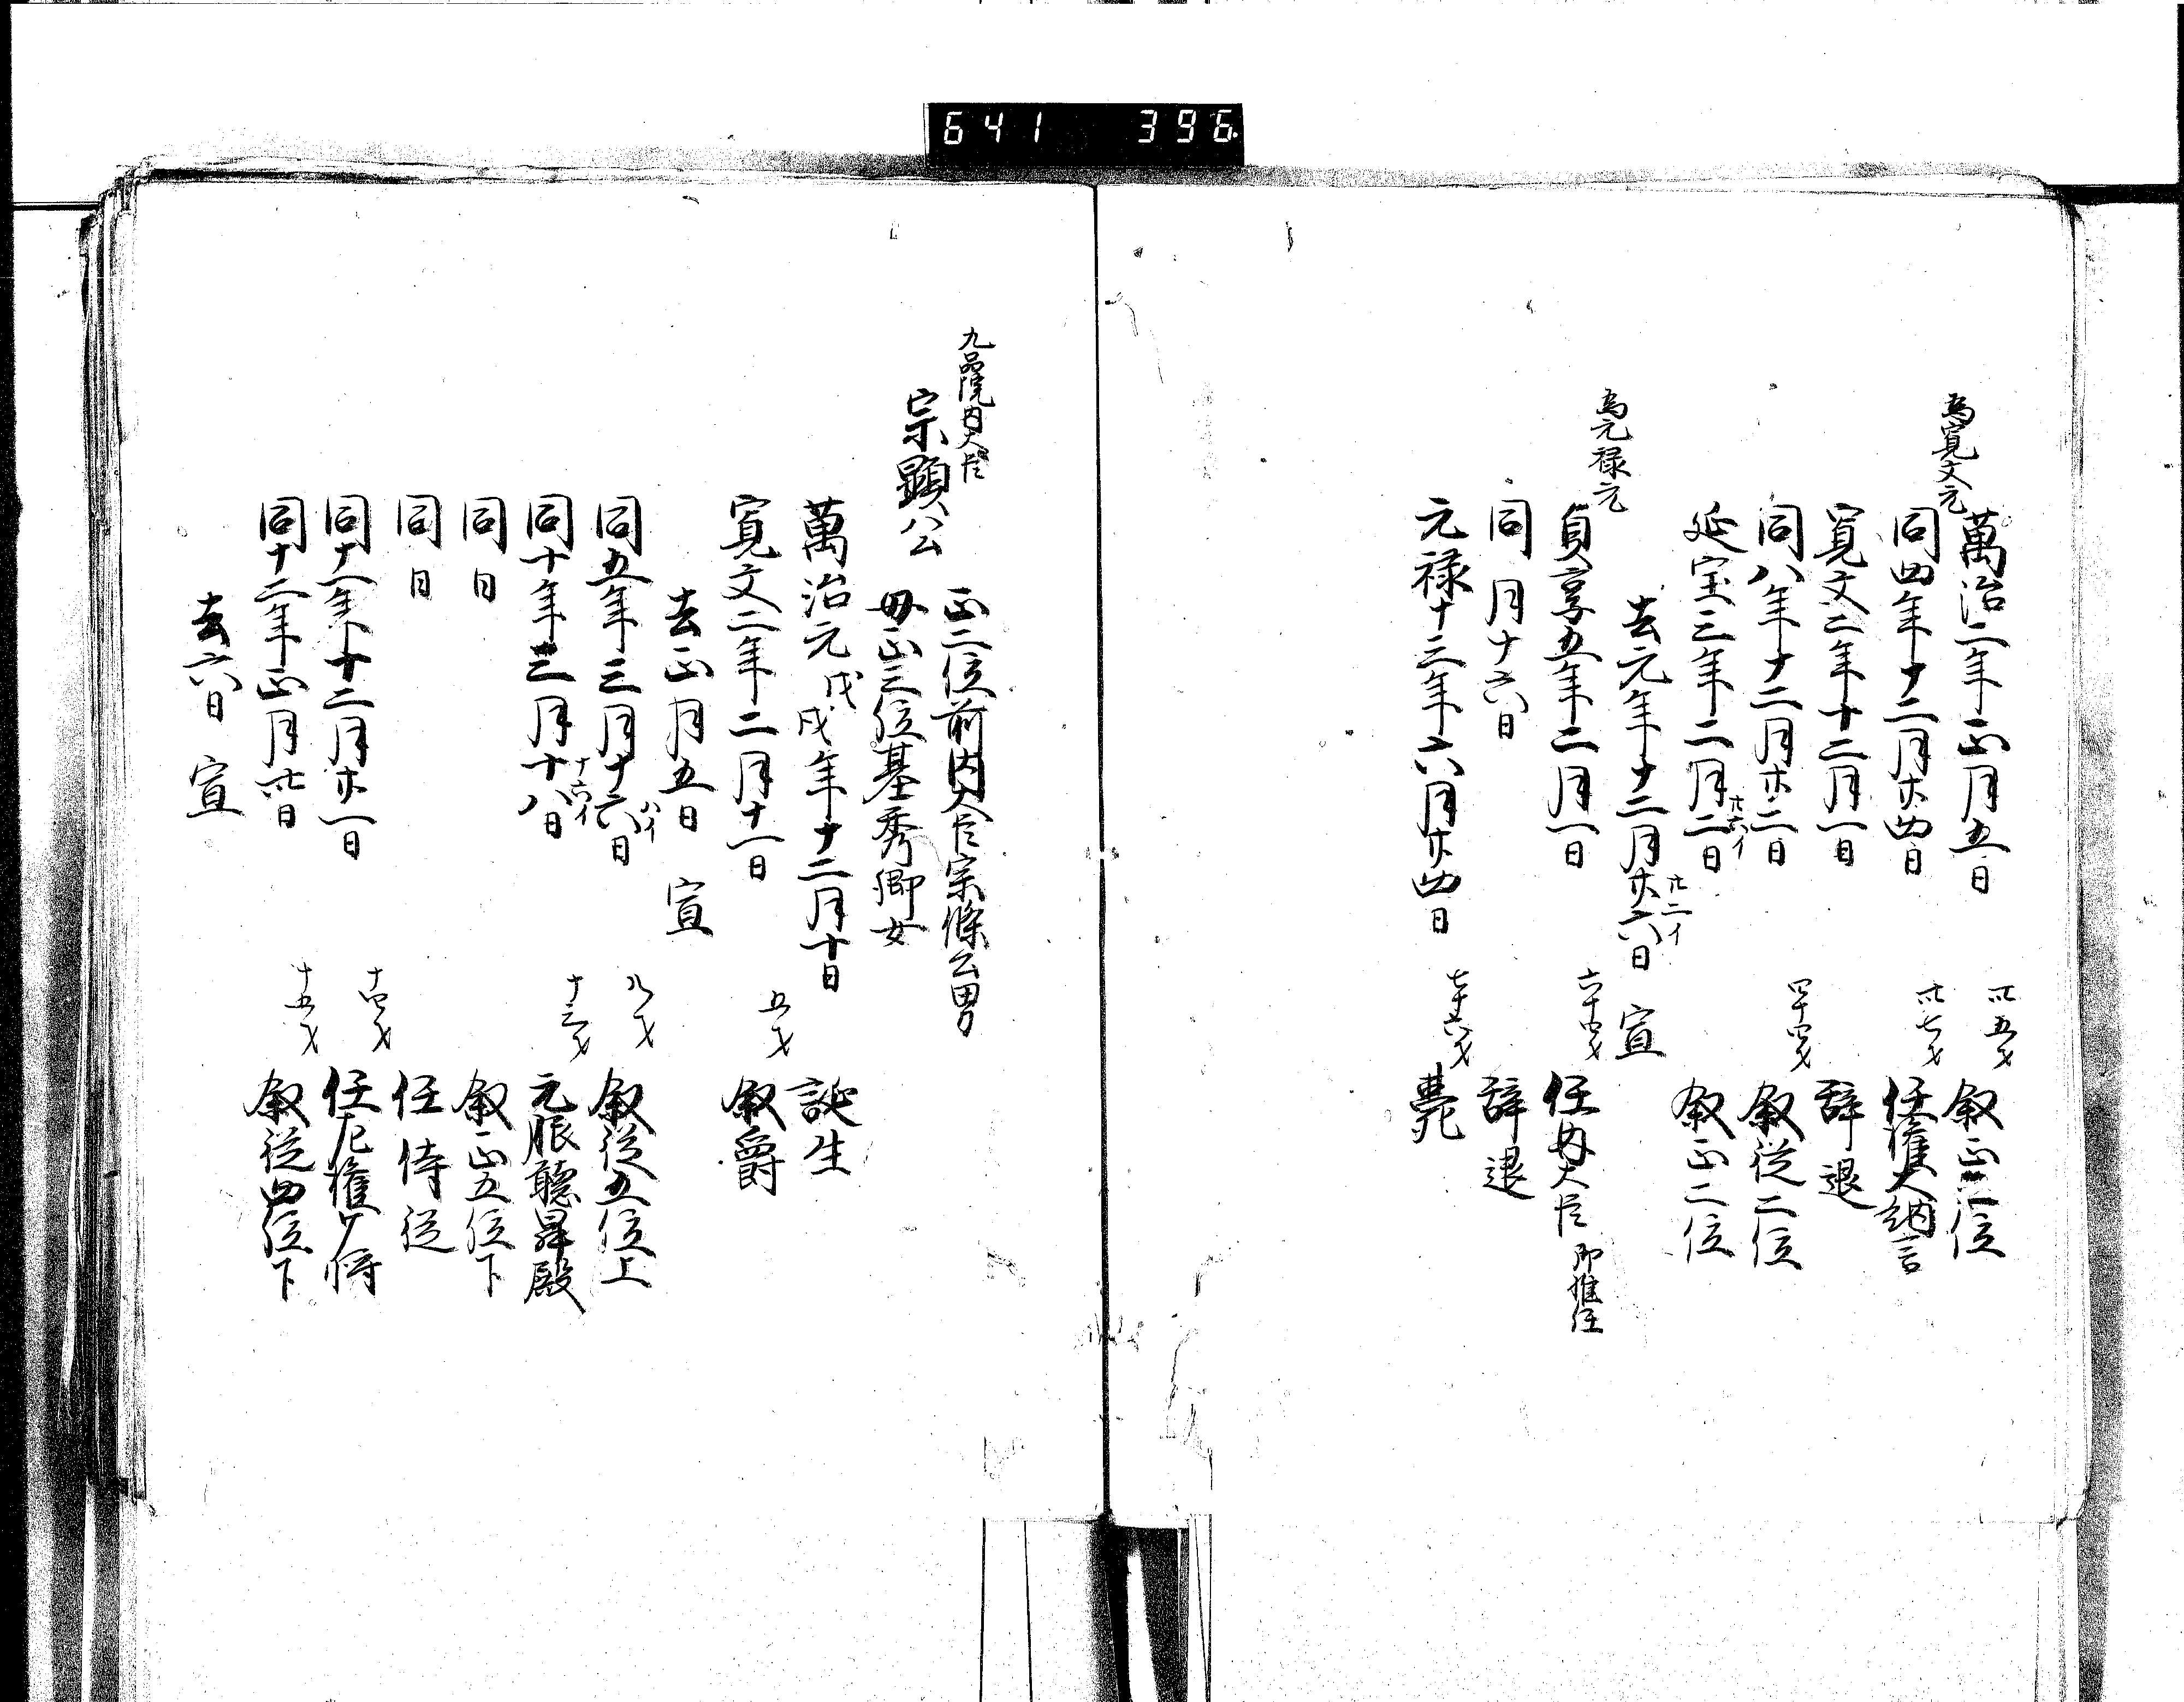 641 396
萬治二年正月五日 卅五才 叙正三位
為寛文元
同四年十二月廿四日 卅七才 任權大納言
寛文二年十二月一日 辞退
同八年十二月廿二日 四十四才 叙従二位
延宝三年二月二日 叙正二位
廿六イ
去元年十二月廿六日 宣
廿二イ
為元禄元
貞享五年二月一日 六十四才 任内大臣 即推任
同月十六日 辞退
元禄十三年六月廿四日 七十六才 薨
九品院内大臣
宗顕公 正二位前内大臣宗條公男
母正三位基秀卿女
萬治元戊戌年十二月十日 誕生
寛文二年二月十一日 五才 叙爵
去正月五日 宣
同五年三月十六日 八才 叙従五位上
八イ
同十年三月十八日 十三才 元服聽昇殿
十六イ
同日 叙正五位下
同日 任侍従
同十一年十二月廿一日 十四才 任左權少将
同十二年正月卅日 十五才 叙従四位下
去六日 宣